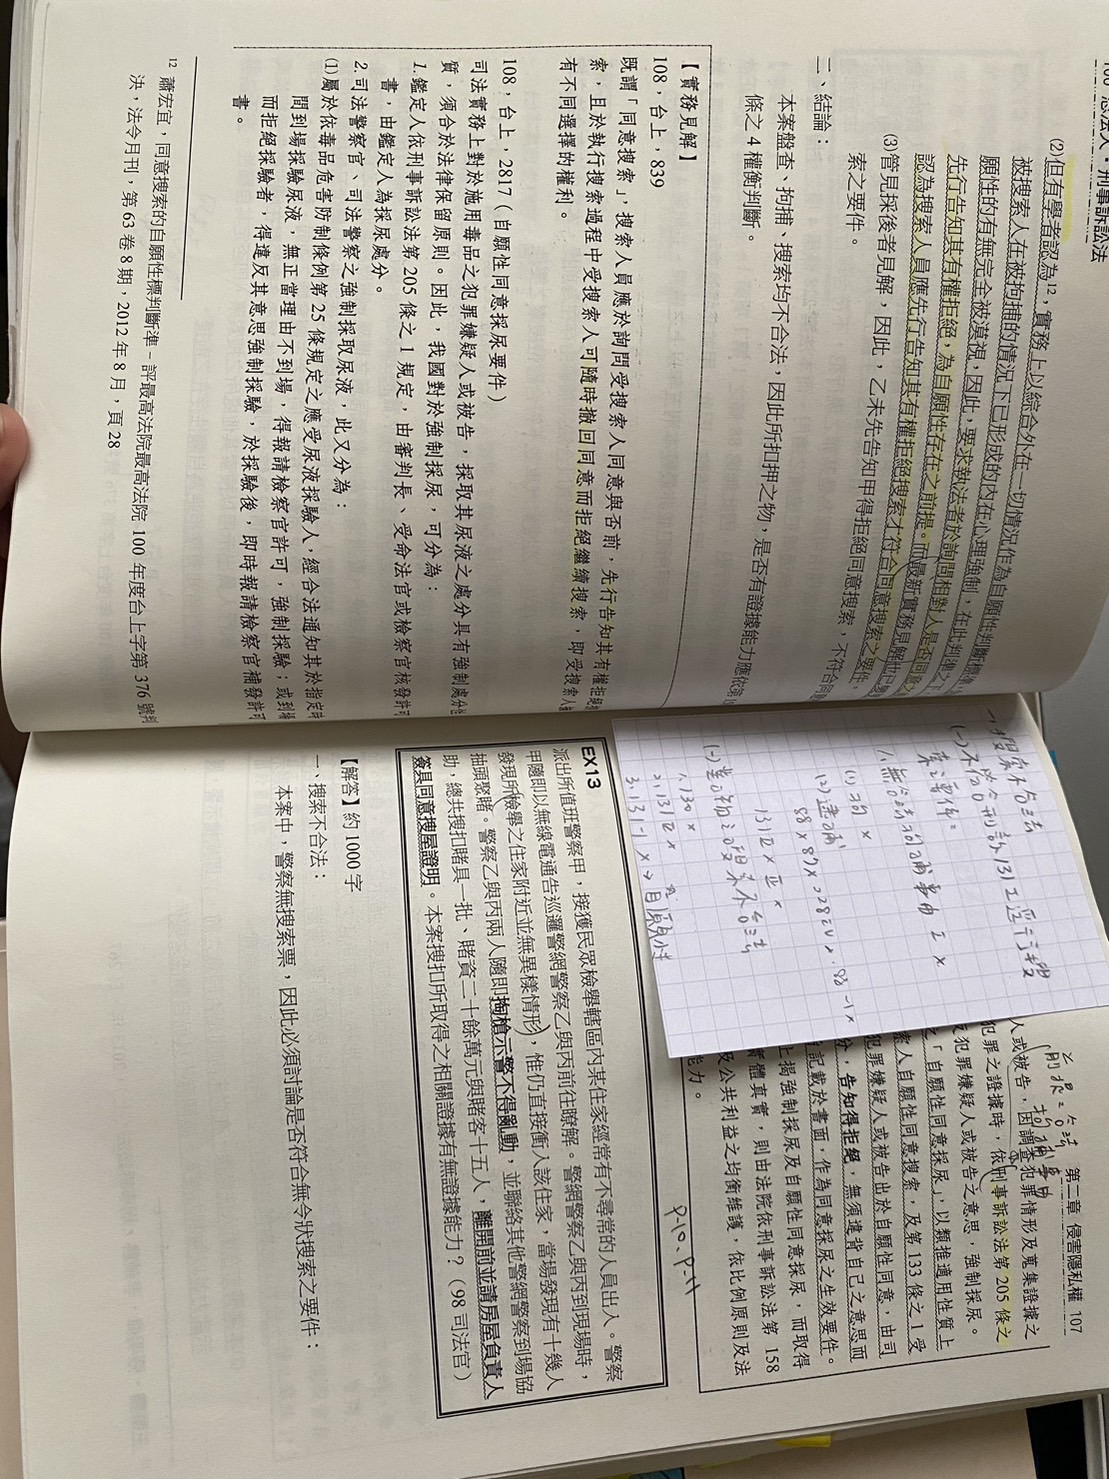 (2)但有學者認為12，實務上以綜合外在一切情況作為自願性判斷標準，
被搜索人在被拘捕的情況下已形成的內在心理強制，在此判準之下
願性的有無完全被漠視，因此，要求執法者於詢問相對人是否同意之
先行告知其有權拒絕，為自願性存在之前提。而最新實務見解
認為搜索人員應先行告知其有權拒絕搜索才符合同意搜索之要件，
(3)管見採後者見解，因此，乙未先告知甲得拒絕同意搜索，不符合同
索之要件。
二、結論：
本案盤查、拘捕、搜索均不合法，因此所扣押之物，是否有證據能力應依第
條之 4 權衡判斷。
【實務見解】
108，台上，839
既謂「同意搜索」，搜索人員應於詢問受搜索人同意與否前，先行告知其有權拒絕
索，且於執行搜索過程中受搜索人可隨時撤回同意而拒絕繼續搜索，即受搜索人
有不同選擇的權利。
108，台上，2817（自願性同意採尿要件）
司法實務上對於施用毒品之犯罪嫌疑人或被告，採取其尿液之處分具有強制處分性
質，須合於法律保留原則。因此，我國對於強制採尿，可分為：
1. 鑑定人依刑事訴訟法第 205 條之 1 規定，由審判長、受命法官或檢察官核發許可
書，由鑑定人為採尿處分。
2. 司法警察官、司法警察之強制採取尿液，此又分為：
(1)屬於依毒品危害防制條例第 25 條規定之應受尿液採驗人，經合法通知其於指定時
間到場採驗尿液，無正當理由不到場，得報請檢察官許可，強制採驗；或到場
而拒絕採驗者，得違反其意思強制採驗，於採驗後，即時報請檢察官補發許可
書。
12 蕭宏宜，同意搜索的自願性標判斷準－評最高法院最高法院 100 年度台上字第 376 號判
決，法令月刊，第 63 卷 8 期，2012 年 8 月，頁 28
第二章 侵害隱私權 107
人或被告，因調查犯罪情形及蒐集證據之
犯罪之證據時，依刑事訴訟法第 205 條之
犯罪嫌疑人或被告之意思，強制採尿。
「自願性同意採尿」，以類推適用性質上
索人自願性同意搜索，及第 133 條之 1 受
犯罪嫌疑人或被告出於自願性同意，由司
分，告知得拒絕，無須違背自己之意思而
記載於書面，作為同意採尿之生效要件。
上揭強制採尿及自願性同意採尿，而取得
實體真實，則由法院依刑事訴訟法第 158
及公共利益之均衡維護，依比例原則及法
能力。
P-10、P-11
EX13
派出所值班警察甲，接獲民眾檢舉轄區內某住家經常有不尋常的人員出入。警察
甲隨即以無線電通告巡邏警網警察乙與丙前往瞭解。警網警察乙與丙到現場時，
發現所檢舉之住家附近並無異樣情形，惟仍直接衝入該住家，當場發現有十幾人
抽頭聚賭。警察乙與丙兩人隨即掏槍示警不得亂動，並聯絡其他警網警察到場協
助，總共搜扣賭具一批、賭資二十餘萬元與賭客十五人，離開前並請房屋負責人
簽具同意搜屋證明。本案搜扣所取得之相關證據有無證據能力？（98 司法官）
【解答】約 1000 字
一、搜索不合法：
本案中，警察無搜索票，因此必須討論是否符合無令狀搜索之要件：